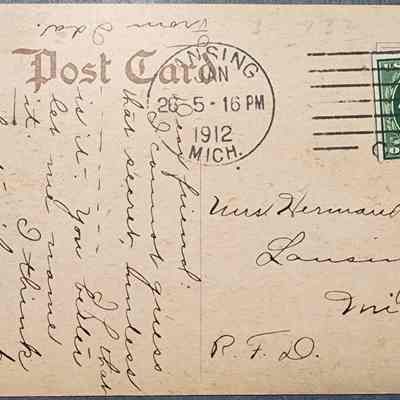 Post Card
LANSING
JAN
26-5-16 PM
1912
MICH.
From Ida.
Dear friend:
I cannot guess
that secret, unless
is it - - - - - - If that
is it. You better
let me name
it. I think
Mrs Herman
Lansing
R. F. D.